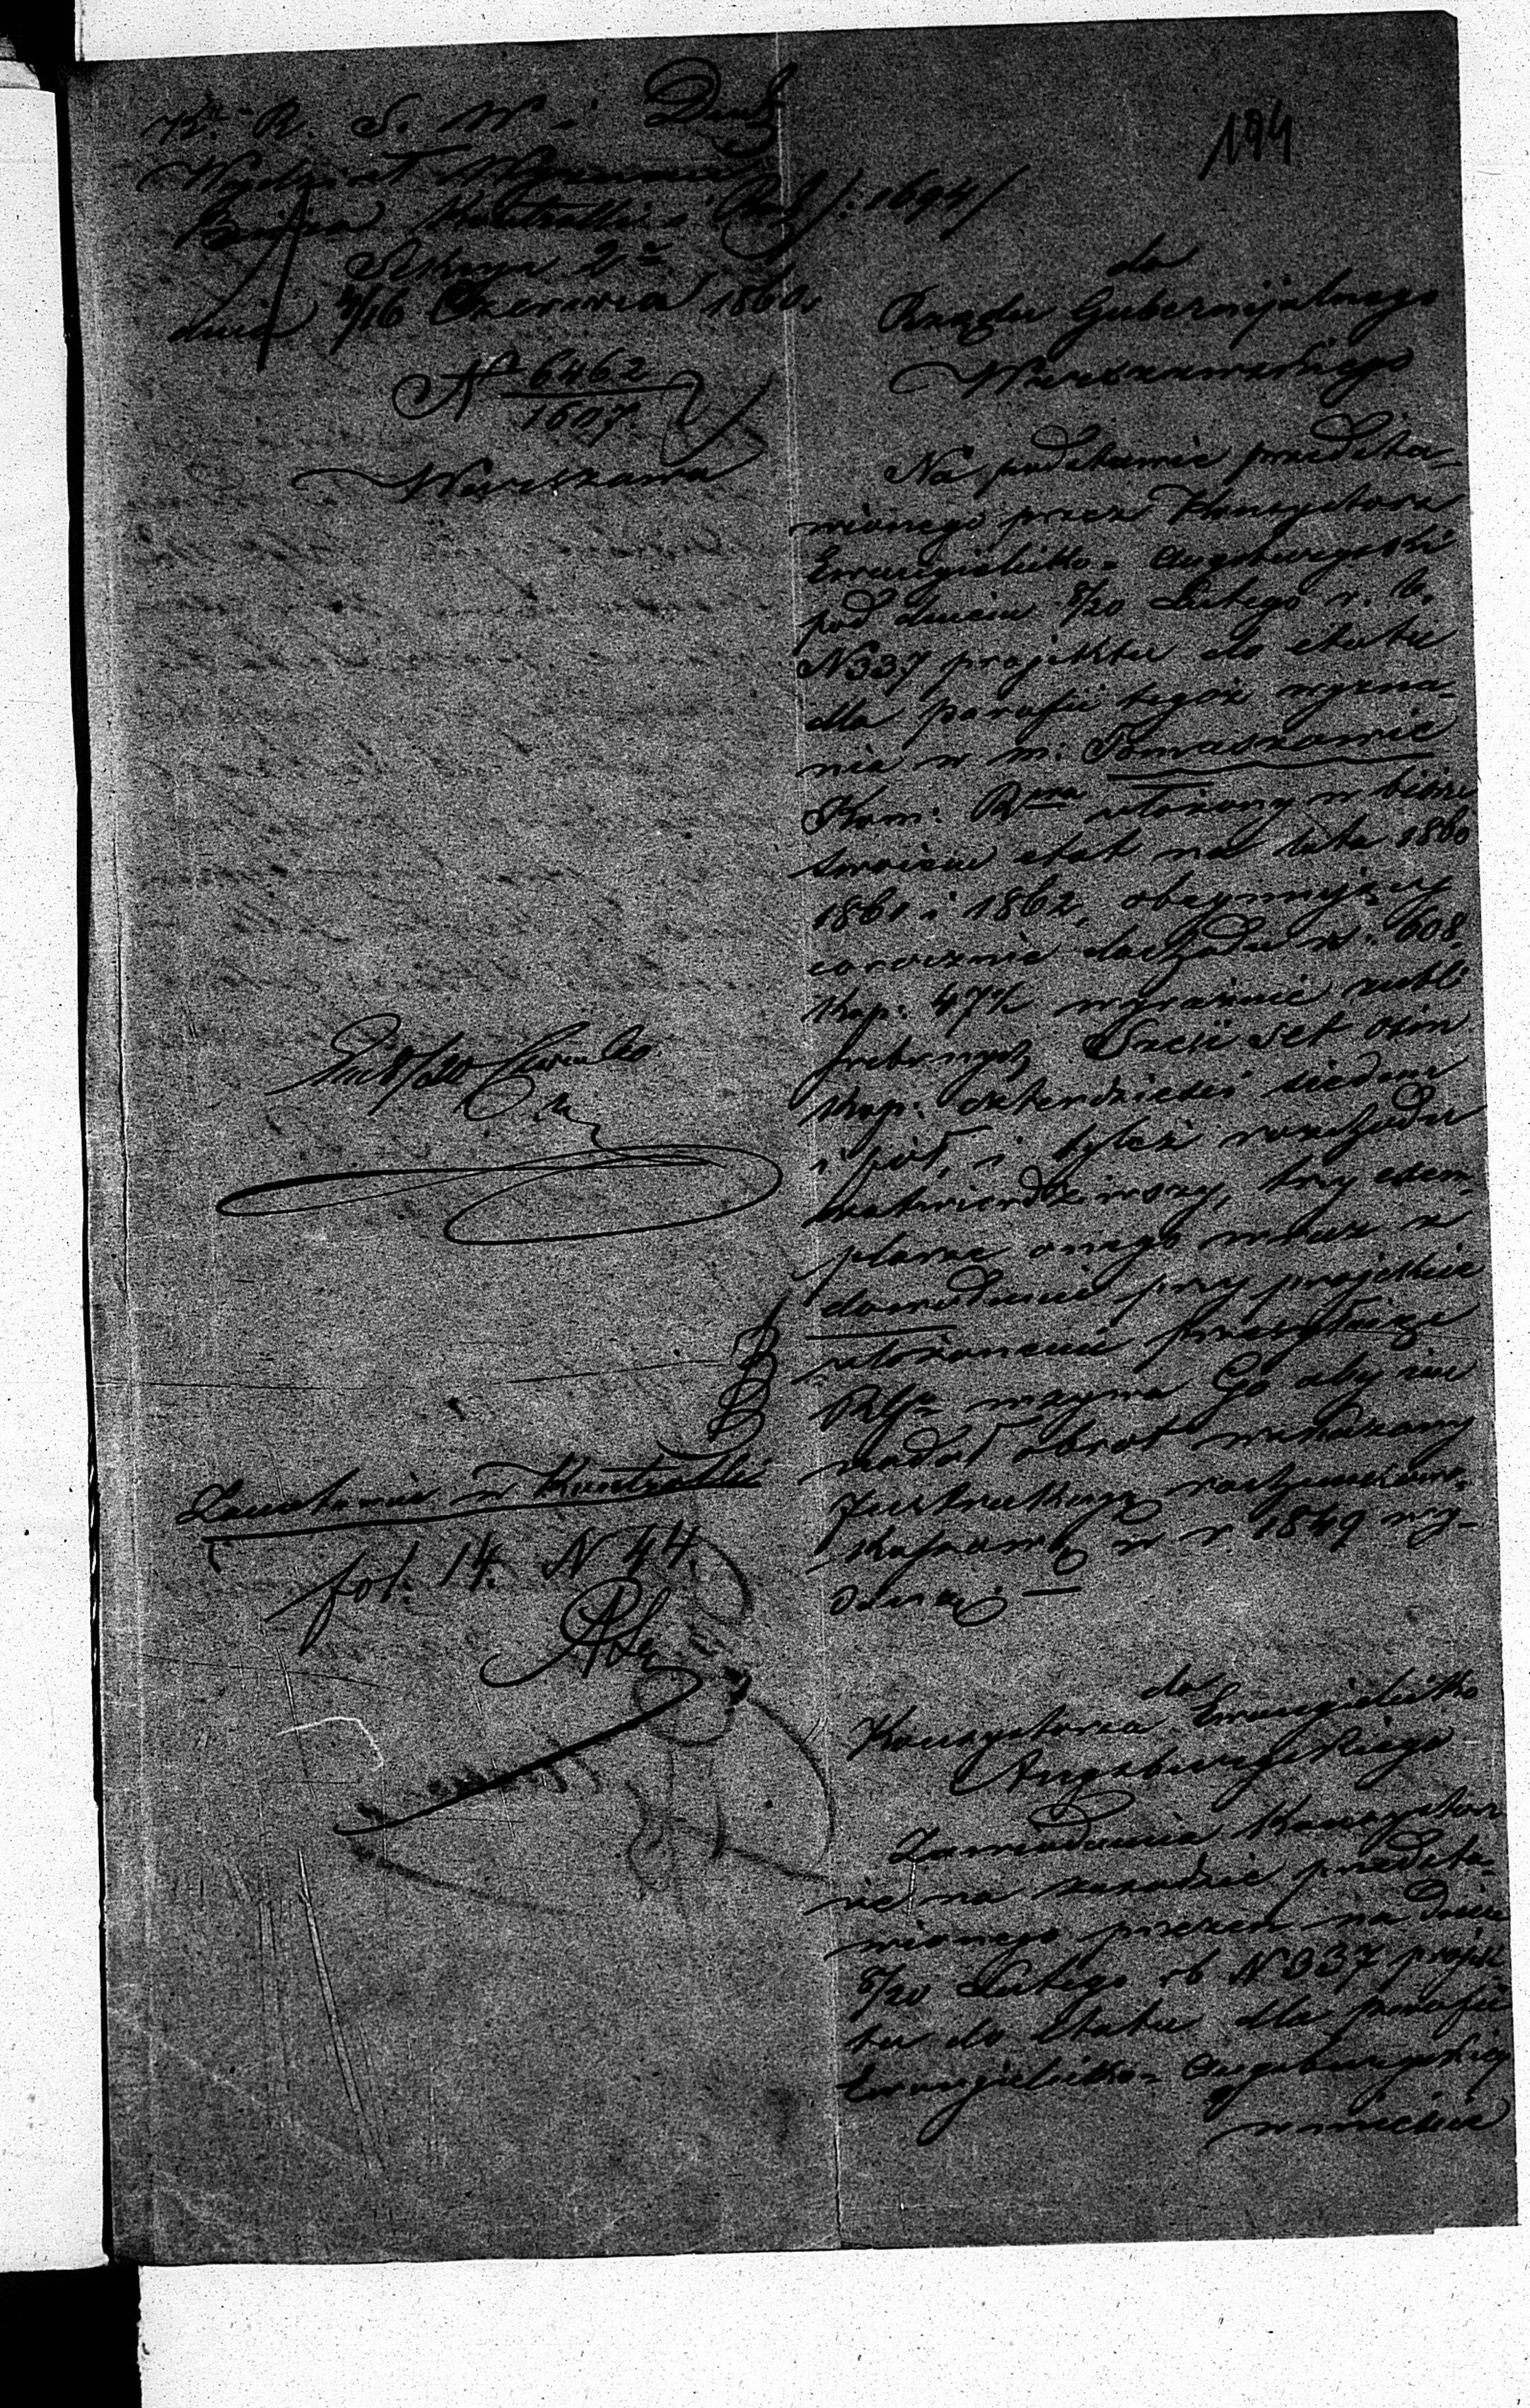 194
K. R. S. W. i Duch
Wydział Wyznań
Biuro Kontrolli i Rach /: 1694/
Sekcya 2ª
dnia 4/16 Czerwca 1860
N 6462
1607.
Warszawa
do
Rządu Gubernijalnego
Warszawskiego
Na podstawie przedsta-
wionego przez Konsystorz
Ewangielicko-Augsburgski
pod dniem 8/20 Lutego r. b.
N 337 projektu do etatu
dla parafii tegoż wyzna-
nia w m: Tomaszowie
Kom: Rwa ułożony w biórze
swoiem etat na lata 1860
1861 i 1862, obejmujący
corocznie dochodu rs. 608
kop: 47½ wyraźnie rubli
srebrnych Sześć set ośm
kop: czterdzieści siedem
i pół, i tyleż rozchodu
zatwierdziwszy, trzy exem-
plarze onego wraz z
dowodami przy projekcie
złożonemi przesyłając
wzywa Go aby im
nadał obrot wskazany
Instrukcyą rachunkowo-
kassową w r. 1849 wy-
daną —
8/20 Czerwca
Zanotowano w Kontrolli
fol. 14. N 44.
do
Konsystorza Ewangielicko
Augsburgskiego
Zawiadamia Konsystorz
że na zasadzie przedsta-
wionego przezeń na dniu
8/20 Lutego rb N 337 projek
tu do etatu dla parafii
Ewangielicko-Augsburgskiej
w mieście